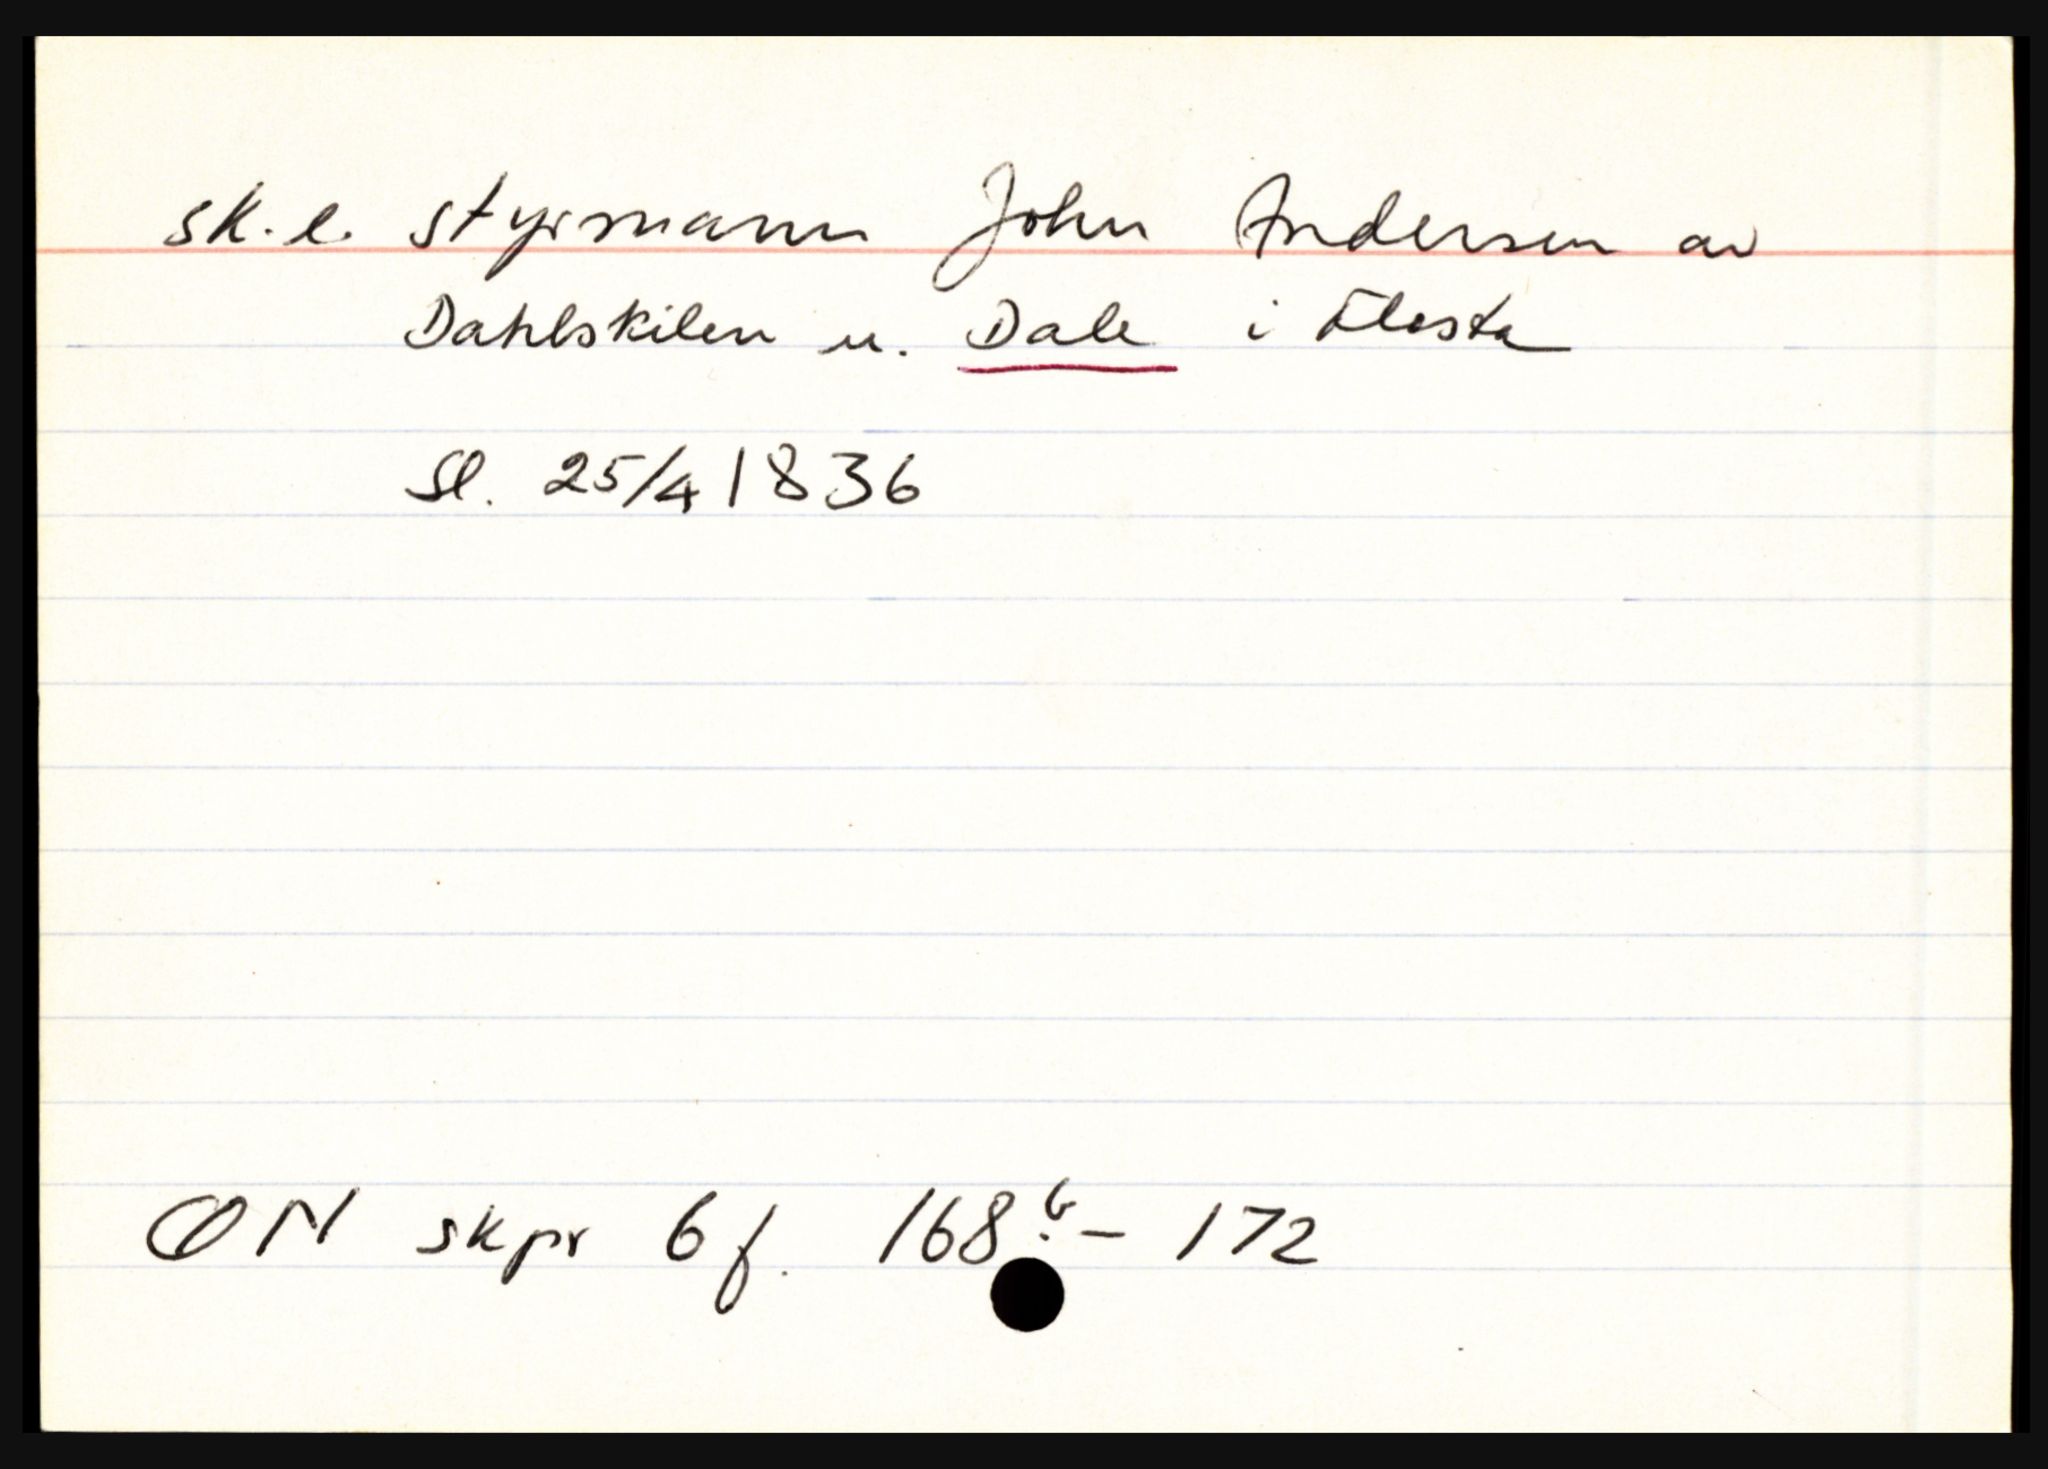 sk. e. styrmann John Andersen av
Dahlskilen u. Dale i Flosta
Sl. 25/4 1836
ØN skpr 6 f. 168b - 172